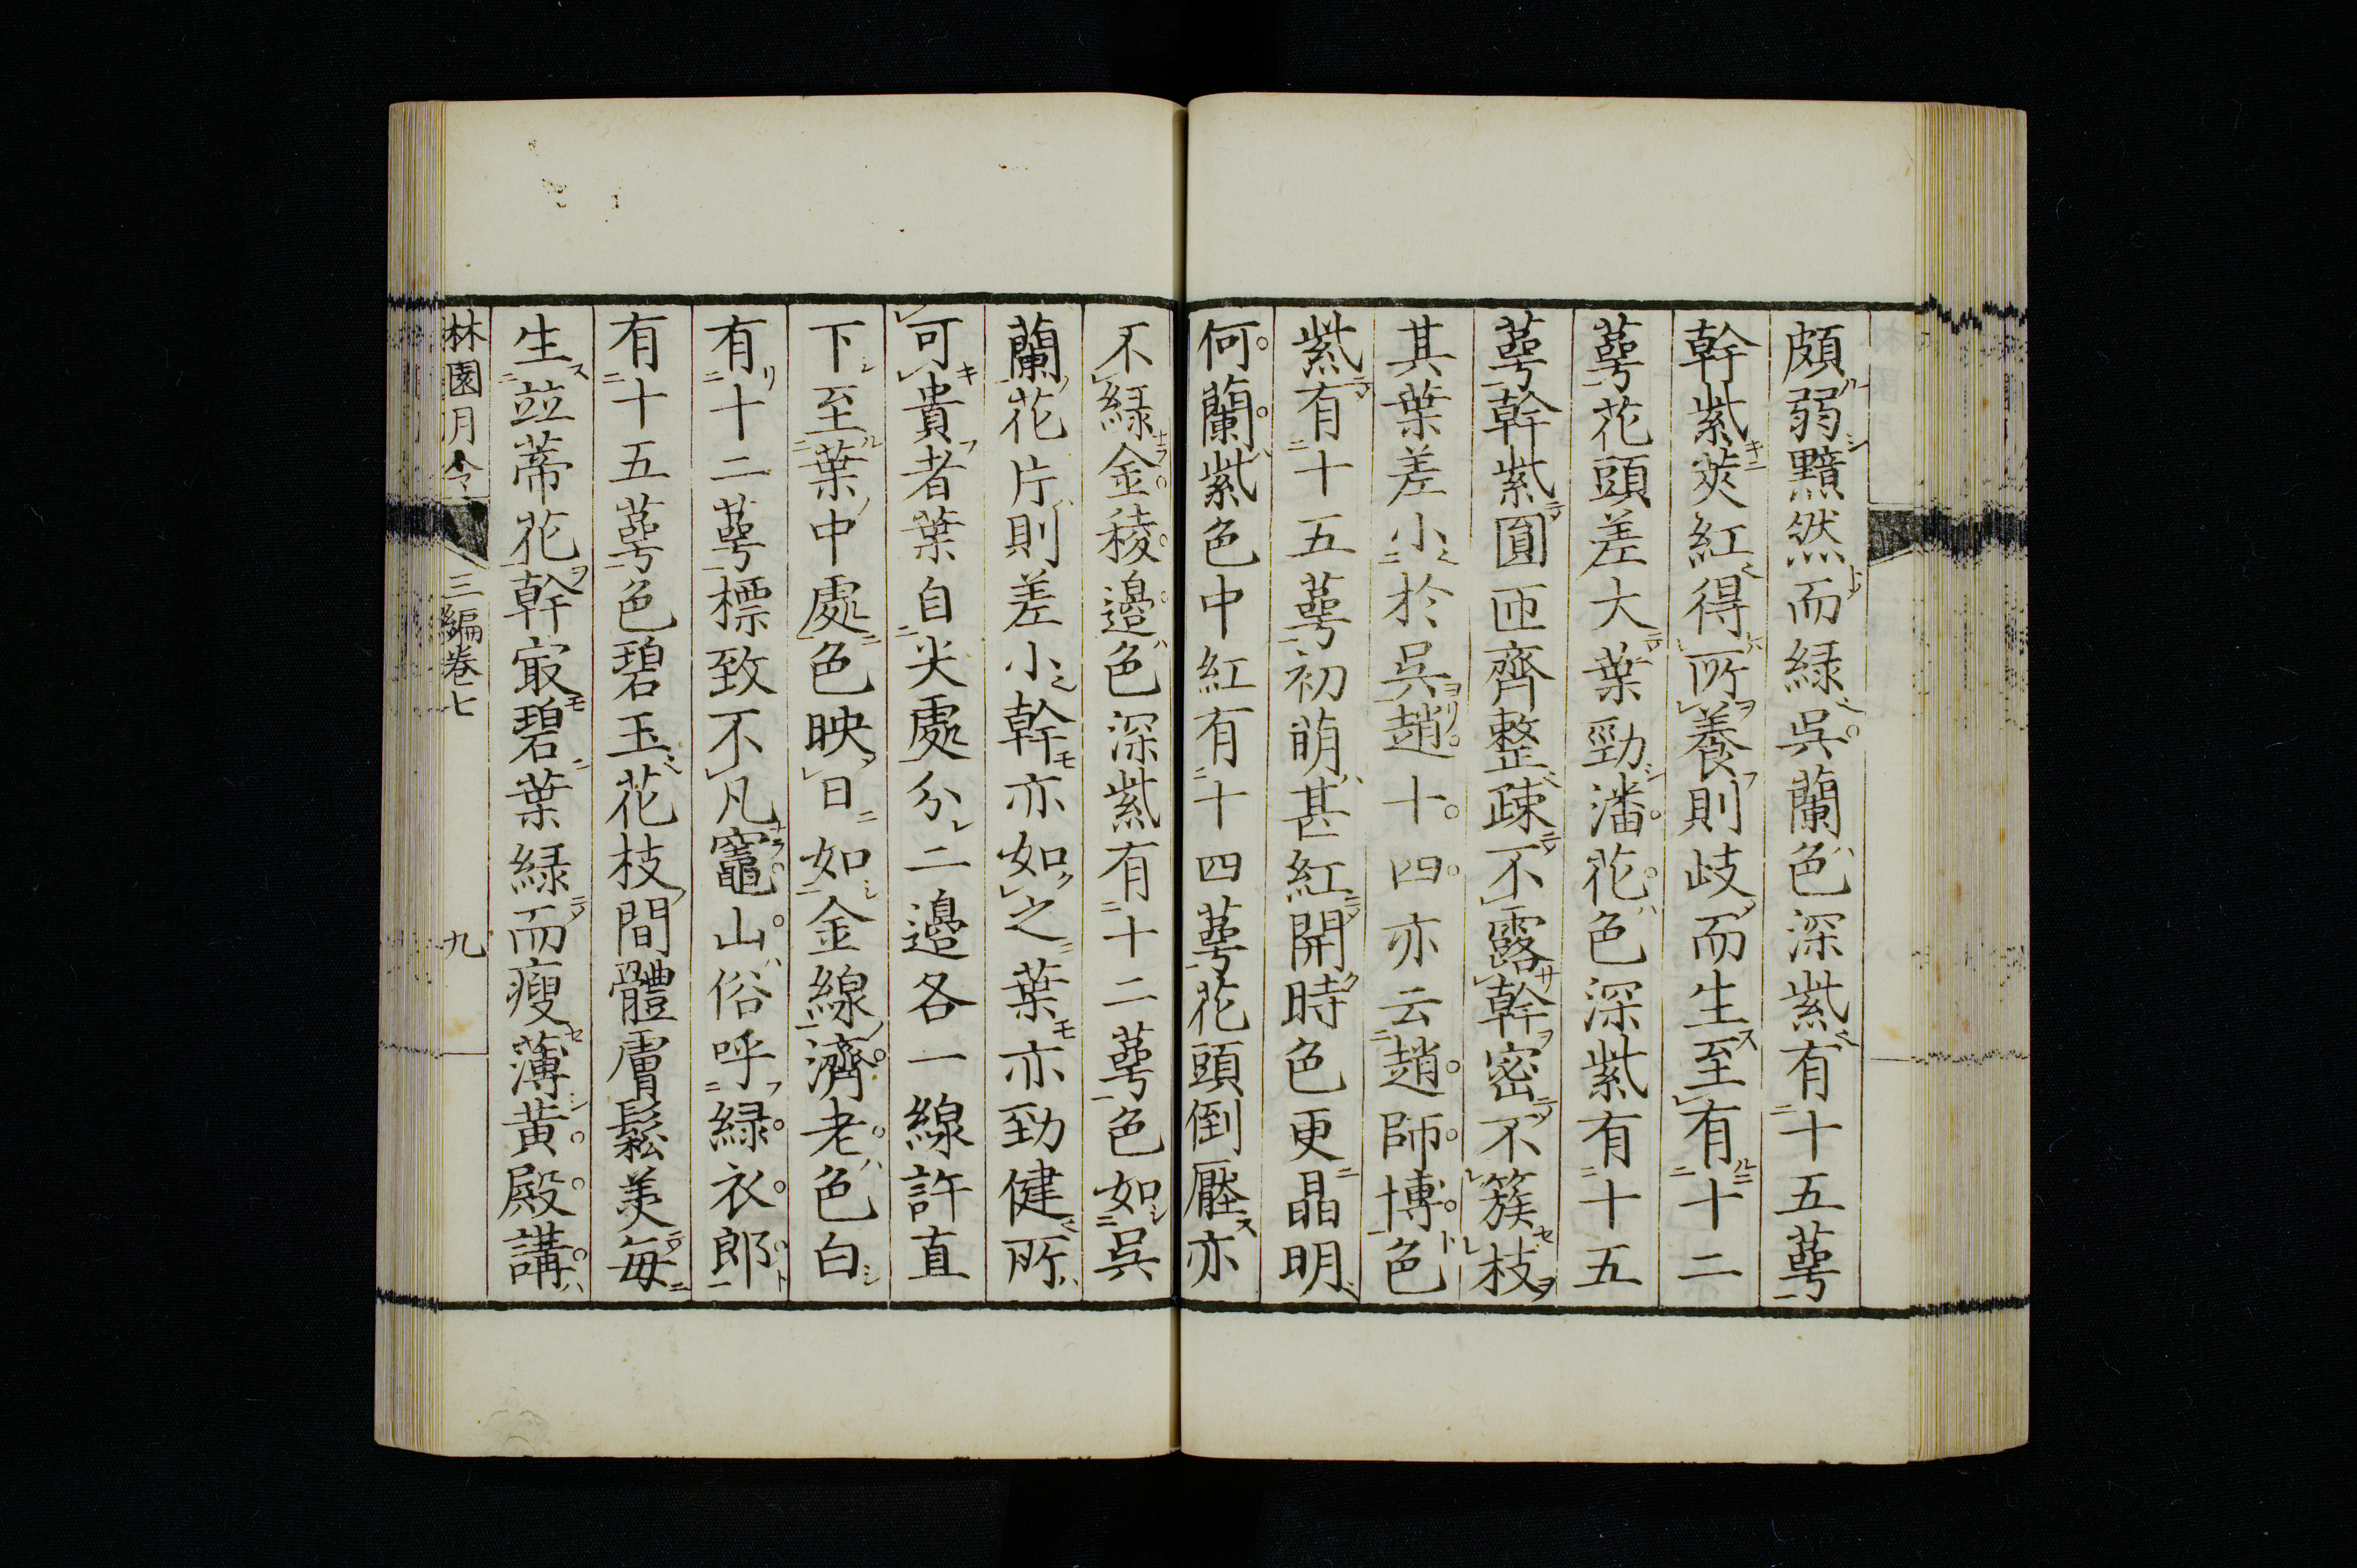 頗弱黯然而緑呉蘭色深紫有十五萼
幹紫莢紅得所養則歧而生至有十二
萼花頭差大葉勁潘花色深紫有十五
萼幹紫圓匝齊整疎不露幹密不簇枝
其葉差小於呉趙十四亦云趙師博色
紫有十五萼初萌甚紅開時色更晶明
何蘭紫色中紅有十四萼花頭倒壓亦
不緑金稜邉色深紫有十二萼色如呉
蘭花片則差小幹亦如之葉亦勁健所
可貴者葉自尖處分二邉各一線許直
下至葉中處色映日如金線濟老色白
有十二萼標致不凡竈山俗呼緑衣郎
有十五萼色碧玉花枝間體膚鬆美毎
生竝蒂花幹㝡碧葉緑而瘦薄黄殿講
林園月令 三編巻七 九